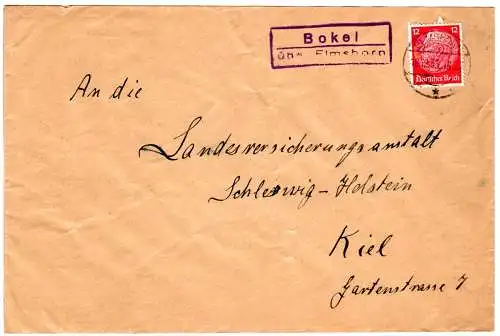 Bokel
übe Elmshorn
12 12
Deutsches Reich
An die
Landesversicherungsanstalt
Schleswig-Holstein
Kiel
Gartenstrasse 7